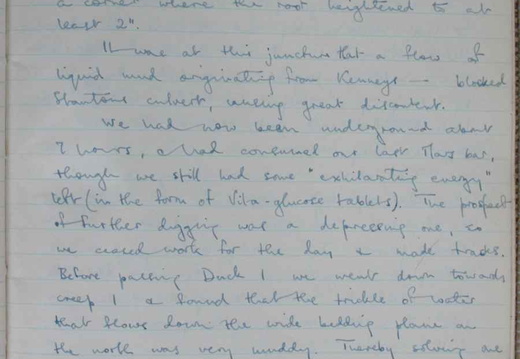 a corner where the roof heightened to at
least 2".
It was at this juncture that a flow of
liquid mud originating from Kenneys — blocked
Stantons culvert, causing great discontent.
We had now been underground about
7 hours, & had consumed our last Mars bar,
though we still had some "exhilarating energy"
left (in the form of Vita-glucose tablets). The prospect
of further digging was a depressing one, so
we ceased work for the day & made tracks.
Before passing Duck 1 we went down towards
creep 1 & found that the trickle of water
that flows down the wide bedding plane on
the north was very muddy. Thereby solving